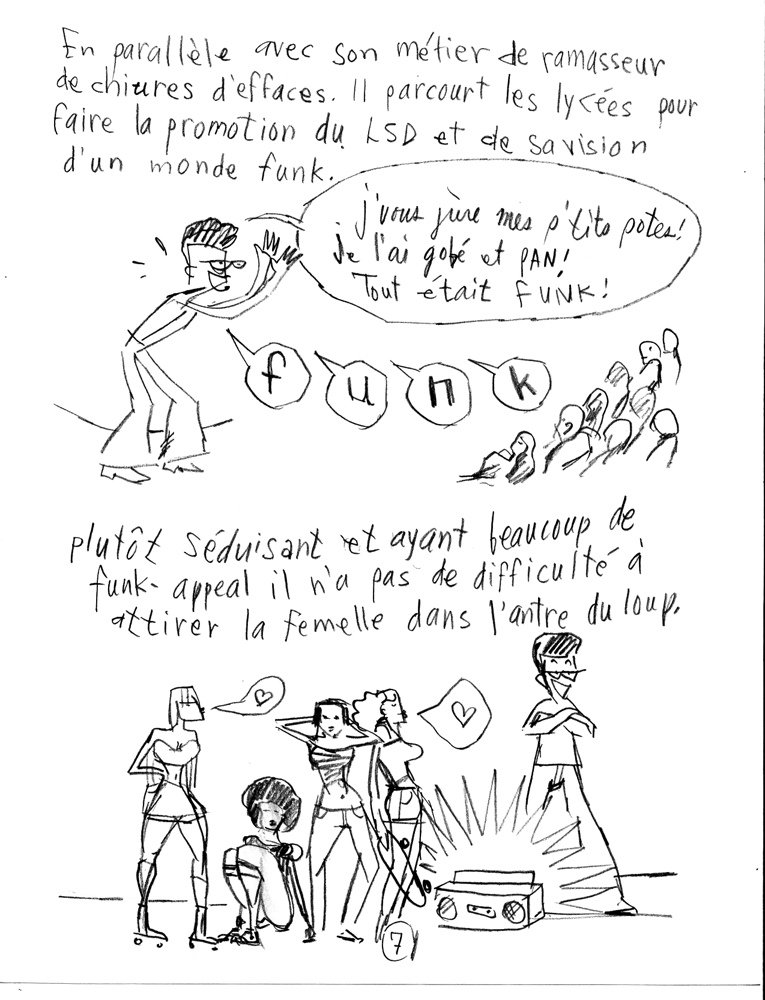 En parallèle avec son métier de ramasseur
de chiures d'effaces. Il parcourt les lycées pour
faire la promotion du LSD et de sa vision
d'un monde funk.
j'vous jure mes p'tits potes!
Je l'ai gobé et PAN!
Tout était FUNK!
f u n k
plutôt séduisant et ayant beaucoup de
funk-appeal il n'a pas de difficulté à
attirer la femelle dans l'antre du loup.
7